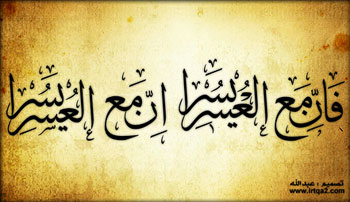 فَإِنَّ مَعَ الْعُسْرِ يُسْرًا إِنَّ مَعَ الْعُسْرِ يُسْرًا
تصميم : عبدالله
www.irtqa2.com